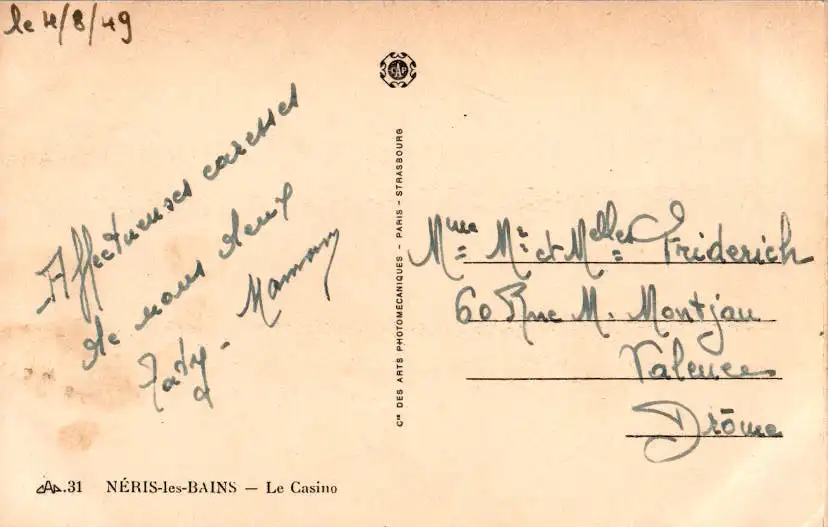 le 4/8/49
Affectueuses caresses
de nous deux
Taty - Maman
CAP
Cie DES ARTS PHOTOMECANIQUES - PARIS - STRASBOURG
Mme Mr et Melles Friderich
60 Rue M. Montjau
Valence
Drôme
CAP.31 NÉRIS-les-BAINS — Le Casino